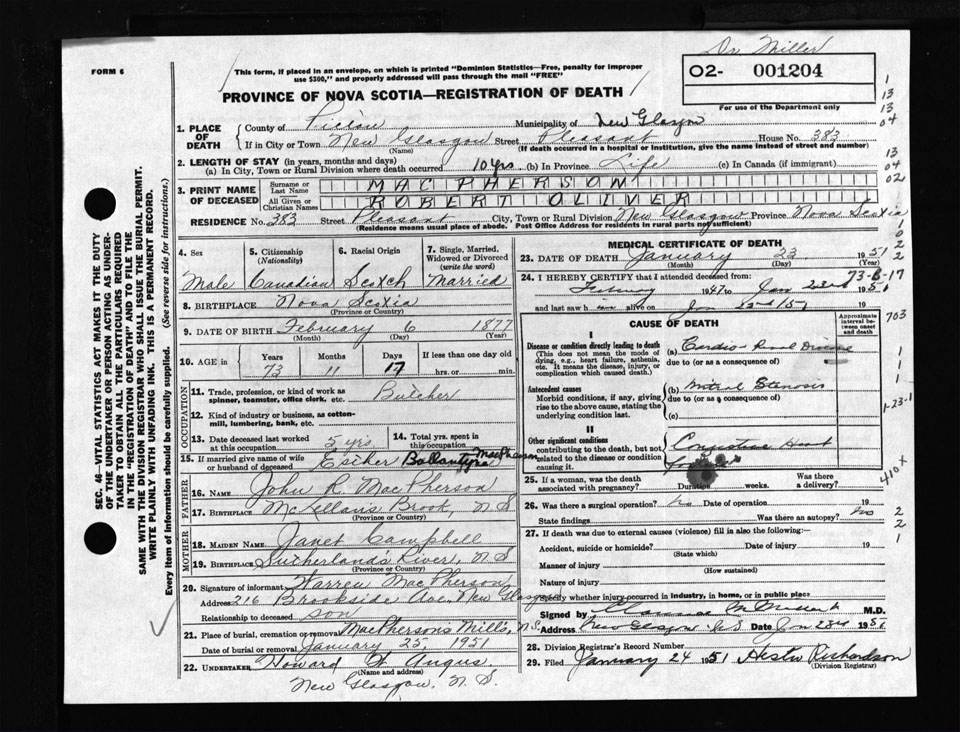 Dr Miller
FORM 6
This form, if placed in an envelope, on which is printed "Dominion Statistics—Free, penalty for improper
use $300," and properly addressed will pass through the mail "FREE"
02- 001204
For use of the Department only
PROVINCE OF NOVA SCOTIA—REGISTRATION OF DEATH
1. PLACE OF DEATH
County of Pictou Municipality of New Glasgow
If in City or Town New Glasgow Street Pleasant House No. 383
(Name) (If death occurred in a hospital or institution, give the name instead of street and number)
2. LENGTH OF STAY (in years, months and days)
(a) In City, Town or Rural Division where death occurred 10 yrs. (b) In Province Life (c) In Canada (if immigrant)
3. PRINT NAME OF DECEASED
Surname or Last Name MACPHERSON
All Given or Christian Names ROBERT OLIVER
RESIDENCE No. 383 Street Pleasant City, Town or Rural Division New Glasgow Province Nova Scotia
(Residence means usual place of abode. Post Office Address for residents in rural parts not sufficient)
4. Sex
Male
5. Citizenship
(Nationality)
Canadian
6. Racial Origin
Scotch
7. Single, Married, Widowed or Divorced
(write the word)
Married
8. BIRTHPLACE Nova Scotia
(Province or Country)
9. DATE OF BIRTH February 6 1877
(Month) (Day) (Year)
10. AGE in Years Months Days If less than one day old
73 11 17 hrs. or min.
OCCUPATION
11. Trade, profession, or kind of work as
spinner, teamster, office clerk, etc. Butcher
12. Kind of industry or business, as cotton-
mill, lumbering, bank, etc.
13. Date deceased last worked
at this occupation 5 yrs
14. Total yrs. spent in
this occupation
15. If married give name of wife
or husband of deceased Esther Ballantyne MacPherson
FATHER
16. NAME John R. MacPherson
17. BIRTHPLACE McLellans Brook, N S
(Province or Country)
MOTHER
18. MAIDEN NAME Janet Campbell
19. BIRTHPLACE Sutherland's River, N S
(Province or Country)
20. Signature of informant Warren MacPherson
Address 216 Brookside Ave. New Glasgow N.S.
Relationship to deceased son
21. Place of burial, cremation or removal MacPherson's Mills,
Date of burial or removal January 25, 1951
22. UNDERTAKER Howard W. Angus
(Name and address)
New Glasgow, N. S.
MEDICAL CERTIFICATE OF DEATH
23. DATE OF DEATH January 23 1951
(Month) (Day) (Year)
24. I HEREBY CERTIFY that I attended deceased from:
73-B-17
1947 to Jan 23rd 1951
and last saw h im alive on Jan 1951
CAUSE OF DEATH
Approximate interval between onset and death
I
Disease or condition directly leading to death
(This does not mean the mode of
dying, e.g., heart failure, asthenia,
etc. It means the disease, injury, or
complication which caused death.)
(a) Cardio-Renal Disease
due to (or as a consequence of)
Antecedent causes
Morbid conditions, if any, giving
rise to the above cause, stating the
underlying condition last.
(b) Mitral Stenosis
due to (or as a consequence of)
(c)
II
Other significant conditions
contributing to the death, but not
related to the disease or condition
causing it.
Congestive Heart
25. If a woman, was the death
associated with pregnancy? Duration weeks. Was there
a delivery?
26. Was there a surgical operation? No Date of operation 19
State findings Was there an autopsy? No
27. If death was due to external causes (violence) fill in also the following:—
Accident, suicide or homicide? Date of injury 19
(State which)
Manner of injury
(How sustained)
Nature of injury
Specify whether injury occurred in industry, in home, or in public place
Signed by M.D.
Address New Glasgow N S Date Jan 23rd 1951
28. Division Registrar's Record Number
29. Filed January 24 1951 Richardson
(Division Registrar)
SEC. 46—VITAL STATISTICS ACT MAKES IT THE DUTY
OF THE UNDERTAKER OR PERSON ACTING AS UNDER-
TAKER TO OBTAIN ALL THE PARTICULARS REQUIRED
IN THE "REGISTRATION OF DEATH" AND TO FILE THE
SAME WITH THE DIVISION REGISTRAR WHO SHALL ISSUE THE BURIAL PERMIT.
WRITE PLAINLY WITH UNFADING INK. THIS IS A PERMANENT RECORD.
Every item of information should be carefully supplied. (See reverse side for instructions.)
1
13
13
04
13
04
02
1
0
2
2
703
1
1
1
1-23-1
410x
2
2
1